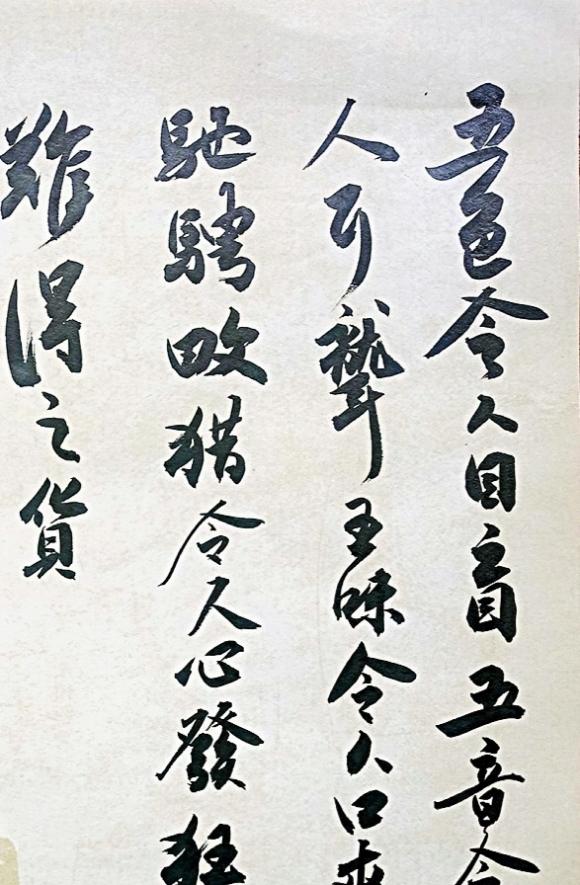 五色令人目盲五音令
人耳聾五味令人口爽
馳騁畋猎令人心發狂
難得之貨